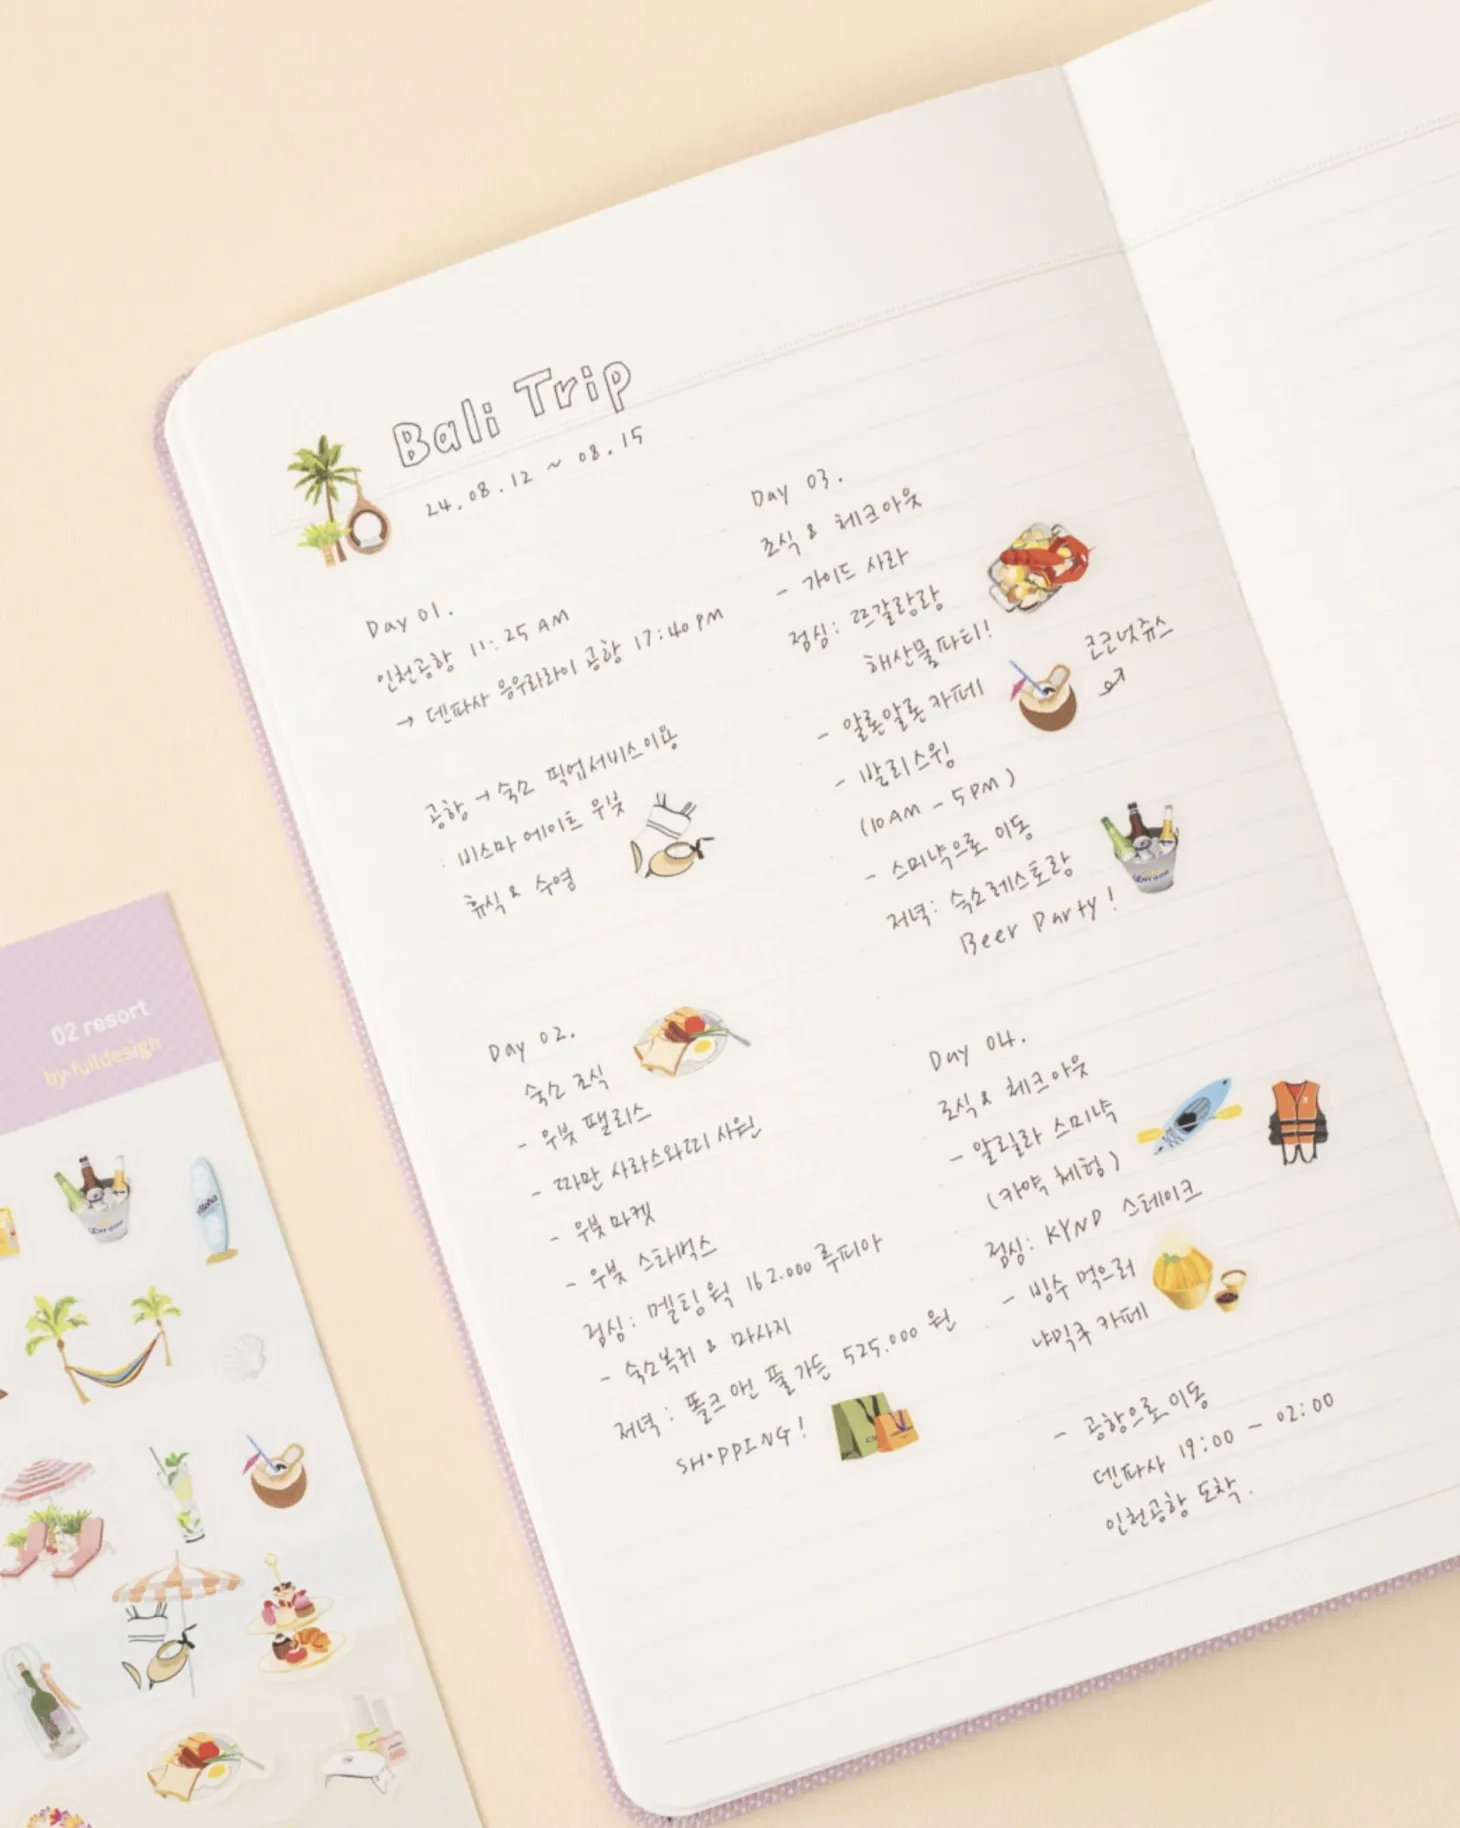 Bali Trip
24.08.12 ~ 08.15
Day 01.
인천공항 11:25 AM
→ 덴파사 응우라라이 공항 17:40 PM
공항 → 숙소 픽업서비스이용
: 비스마 에이트 우붓
휴식 & 수영
Day 02.
숙소 조식
- 우붓 팰리스
- 따만 사라스와띠 사원
- 우붓 마켓
- 우붓 스타벅스
점심: 멜팅 웍 162.000 루피아
- 숙소복귀 & 마사지
저녁: 폴크 앤 풀 가든 525.000 원
SHOPPING!
Day 03.
조식 & 체크아웃
- 가이드 사라
점심: 르갈랑랑
해산물파티!
코코넛쥬스
- 알론알론 카페
- 발리스윙
(10AM - 5PM)
- 스미냑으로 이동
저녁: 숙소레스토랑
Beer Party!
Day 04.
조식 & 체크아웃
- 알릴라 스미냑
(카약 체험)
점심: KYND 스테이크
- 빙수 먹으러
냐믹쿠 카페
- 공항으로 이동
덴파사 19:00 - 02:00
인천공항 도착.
02 resort
by fulldesign
Corona
Aloha